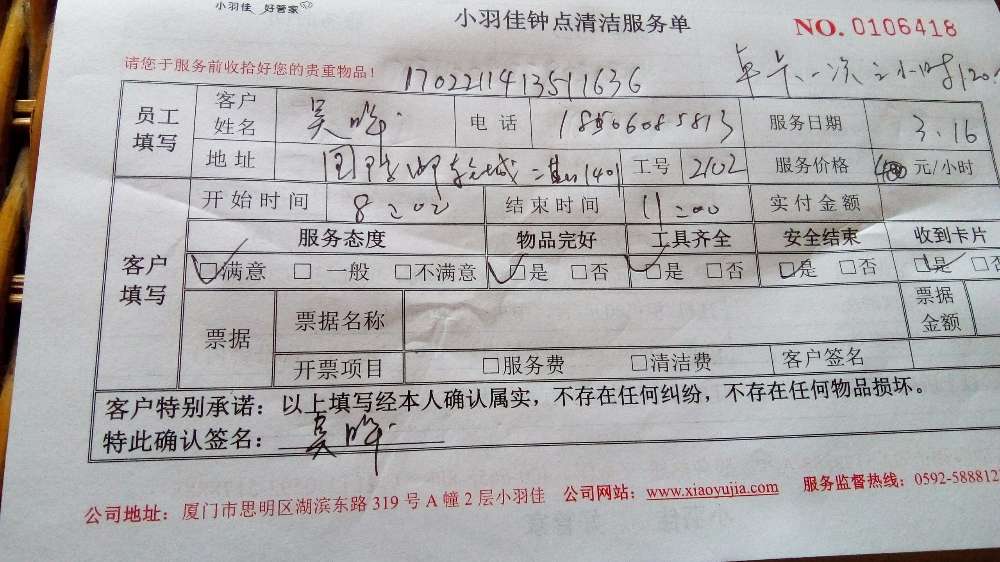 小羽佳 好管家
小羽佳钟点清洁服务单
NO. 0106418
请您于服务前收拾好您的贵重物品!
1702211413511636
单卡一次3小时120
员工填写 客户姓名 吴 电话 18506085813 服务日期 3.16
地址 1401 工号 2102 服务价格 40 元/小时
客户填写 开始时间 8:00 结束时间 11:00 实付金额
服务态度 物品完好 工具齐全 安全结束 收到卡片
☑满意 □一般 □不满意 ☑是 □否 ☑是 □否 ☑是 □否 ☑是 □否
票据 票据名称 票据金额
开票项目 □服务费 □清洁费 客户签名
客户特别承诺：以上填写经本人确认属实，不存在任何纠纷，不存在任何物品损坏。
特此确认签名： 吴
公司地址：厦门市思明区湖滨东路 319 号 A 幢 2 层小羽佳 公司网站：www.xiaoyujia.com 服务监督热线：0592-588812